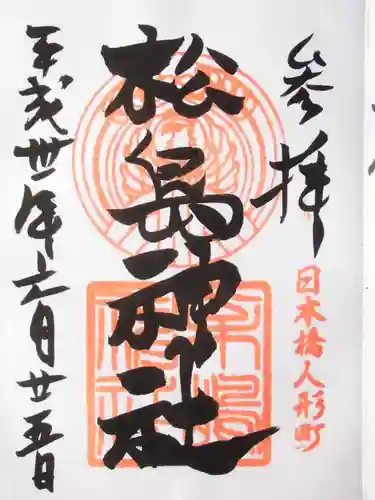 参拝
日本橋人形町
松島神社
平成丗年六月廿五日